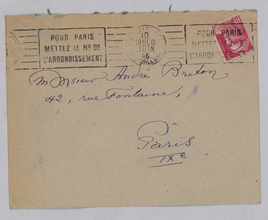 POUR PARIS
METTEZ LE Nº DE
L'ARRONDISSEMENT
POUR PARIS
METTEZ
L'ARRON
Monsieur André Breton
42, rue Fontaine,
Paris
IXe